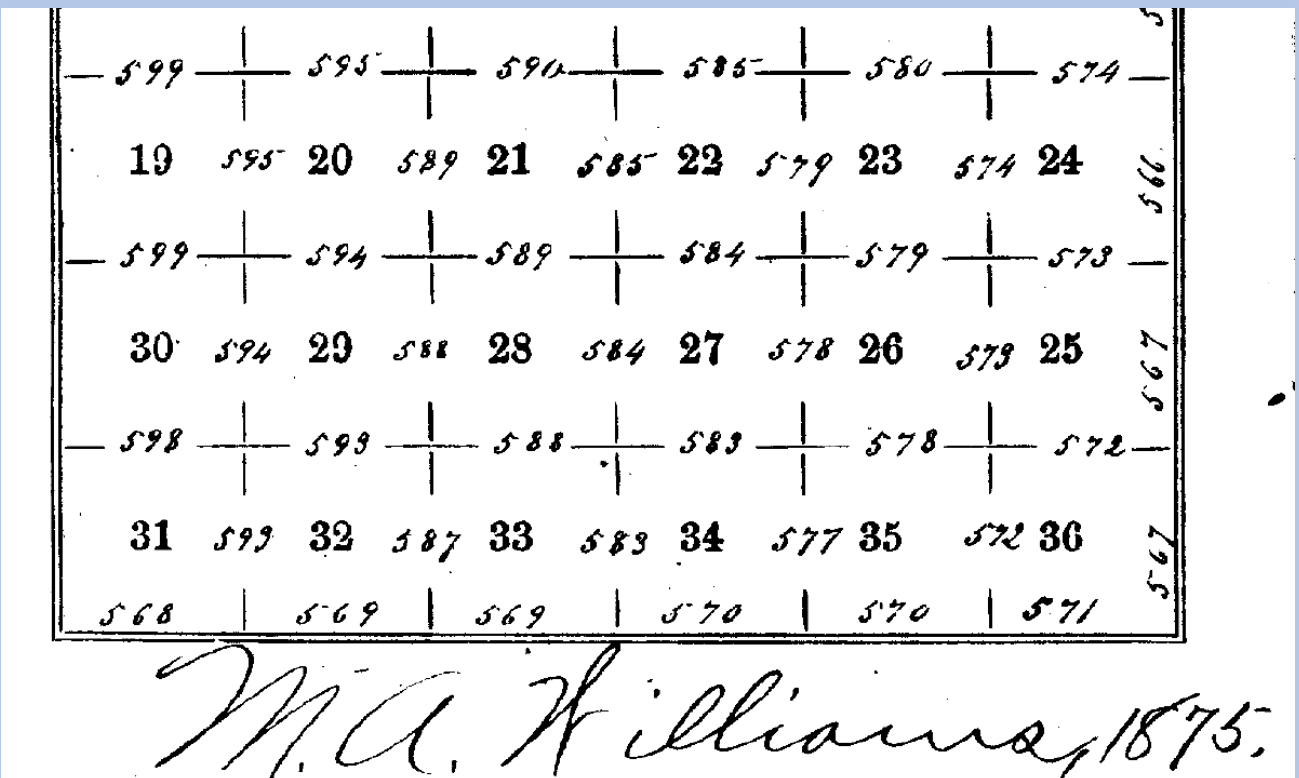 5
599 595 590 585 580 574
19 595 20 589 21 585 22 579 23 574 24 566
599 594 589 584 579 573
30 594 29 588 28 584 27 578 26 573 25 567
598 593 588 583 578 572
31 593 32 587 33 583 34 577 35 572 36 567
568 569 569 570 570 571
M. A. Williams, 1875.